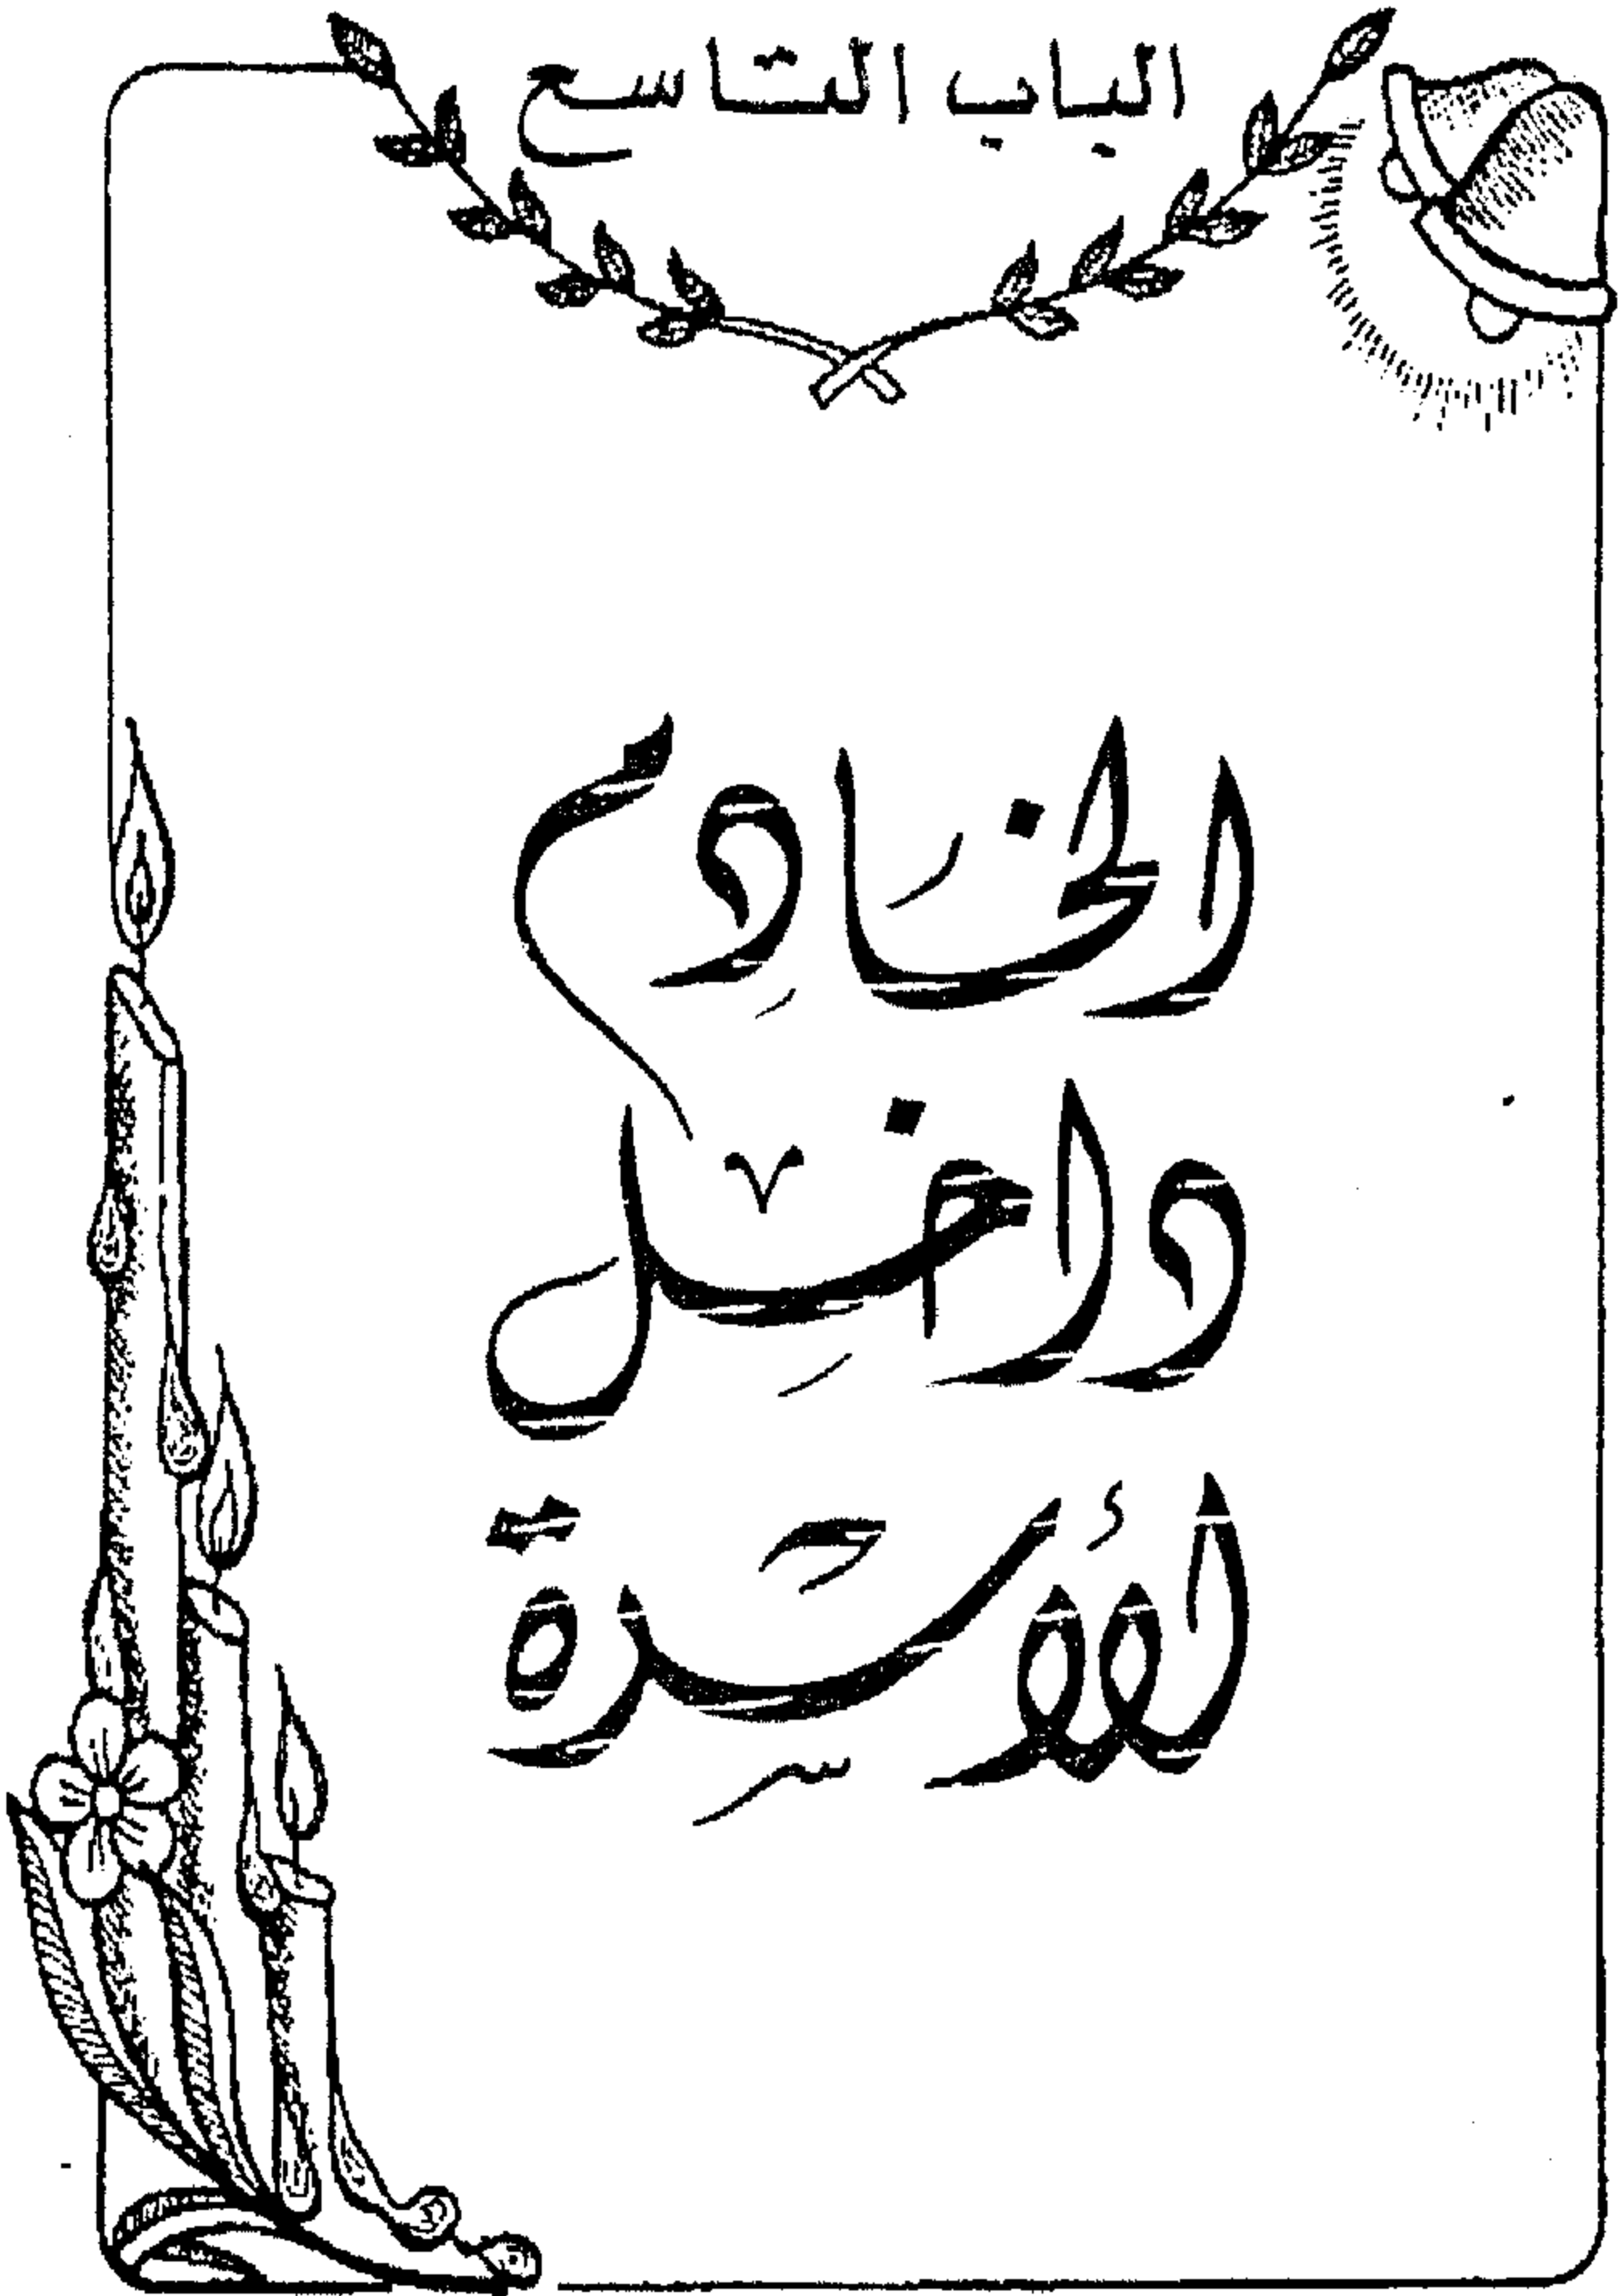 الباب التاسع
الخادم
داخل
الأسرة